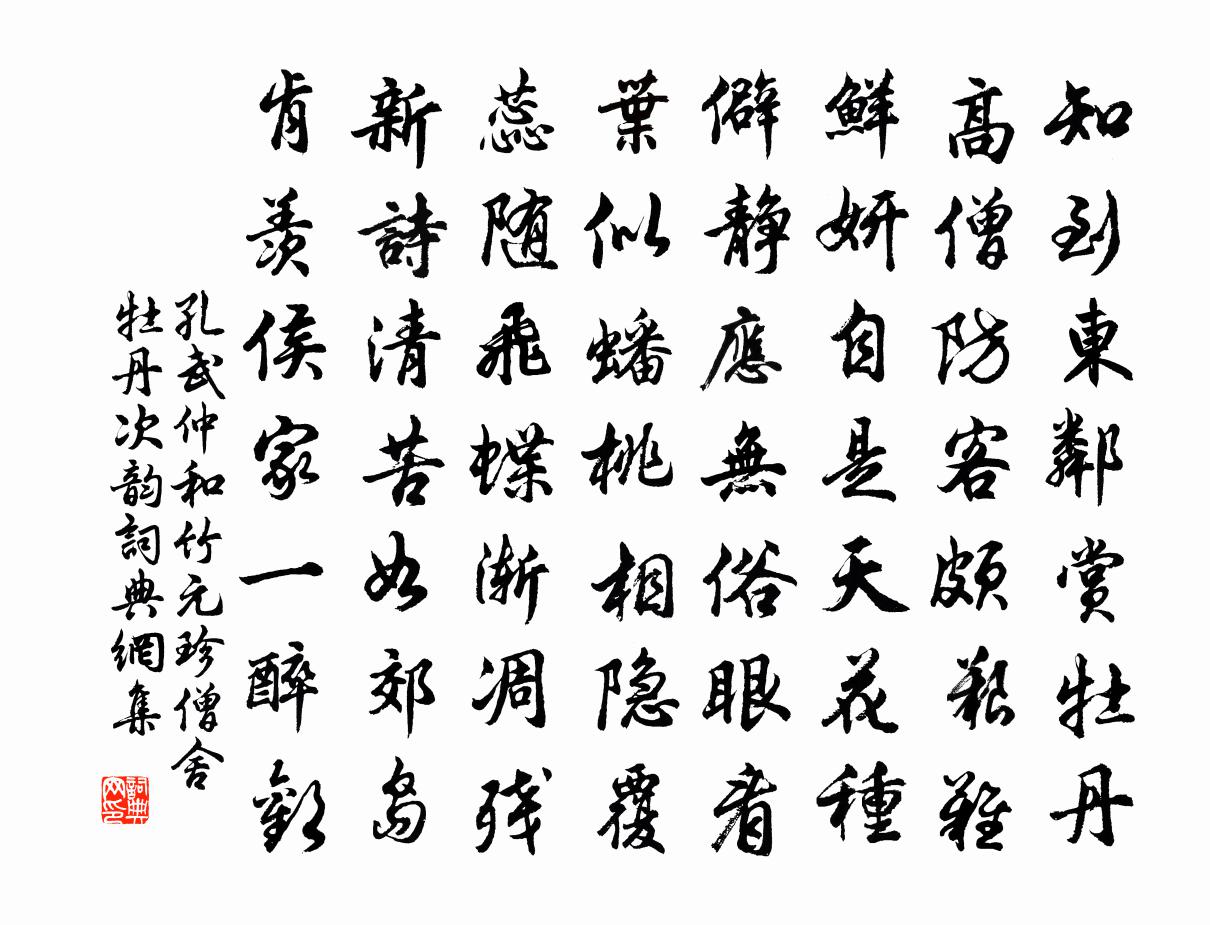 知到東鄰賞牡丹
高僧防客頗艱難
鮮妍自是天花種
僻靜應無俗眼看
葉似蟠桃相隐覆
蕊随飛蝶漸凋残
新詩清苦如郊島
肯羨侯家一醉歡
孔武仲和竹元珍僧舍
牡丹次韵詞典網集
詞典网印